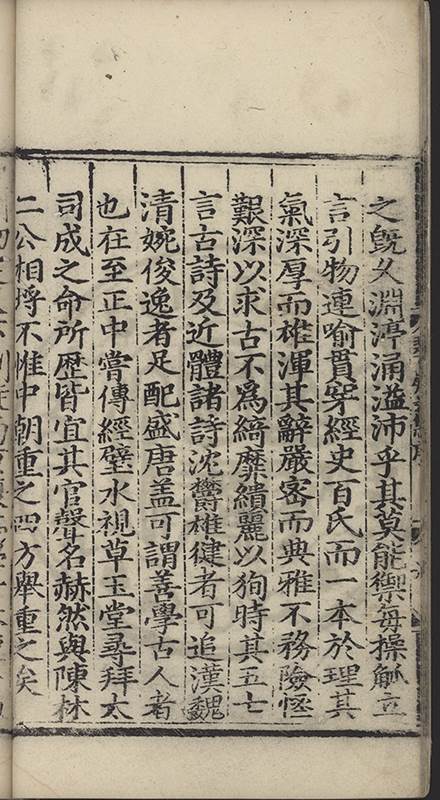 之既久淵渟涌溢沛乎其莫能禦每操觚立
言引物連喻貫穿經史百氏而一本於理其
氣深厚而雄渾其辭嚴密而典雅不務險怪
艱深以求古不爲綺靡繢麗以狥時其五七
言古詩及近體諸詩沈欝雄健者可追漢魏
清婉俊逸者足配盛唐盖可謂善學古人者
也在至正中嘗傳經璧水視草玉堂尋拜太
司成之命所歷皆宜其官聲名赫然與陳林
二公相埒不惟中朝重之四方舉重之矣